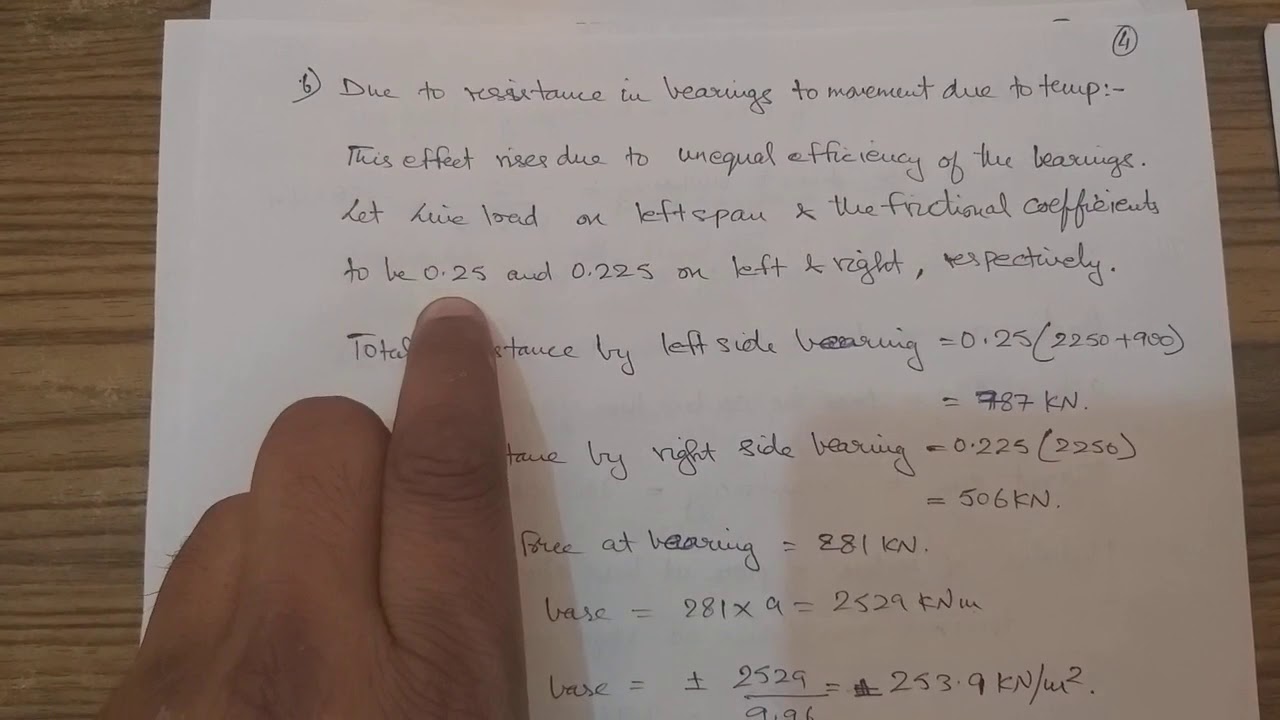 4
6) Due to resistance in bearings to movement due to temp:-
This effect rises due to unequal efficiency of the bearings.
Let Live load on left span & the frictional coefficients
to be 0.25 and 0.225 on left & right, respectively.
Total by left side bearing = 0.25(2250+900)
= 787 KN.
by right side bearing = 0.225(2250)
= 506 KN.
at bearing = 281 KN.
base = 281 x 9 = 2529 KNm
base = ± 2529/9.96 = ± 253.9 KN/m².